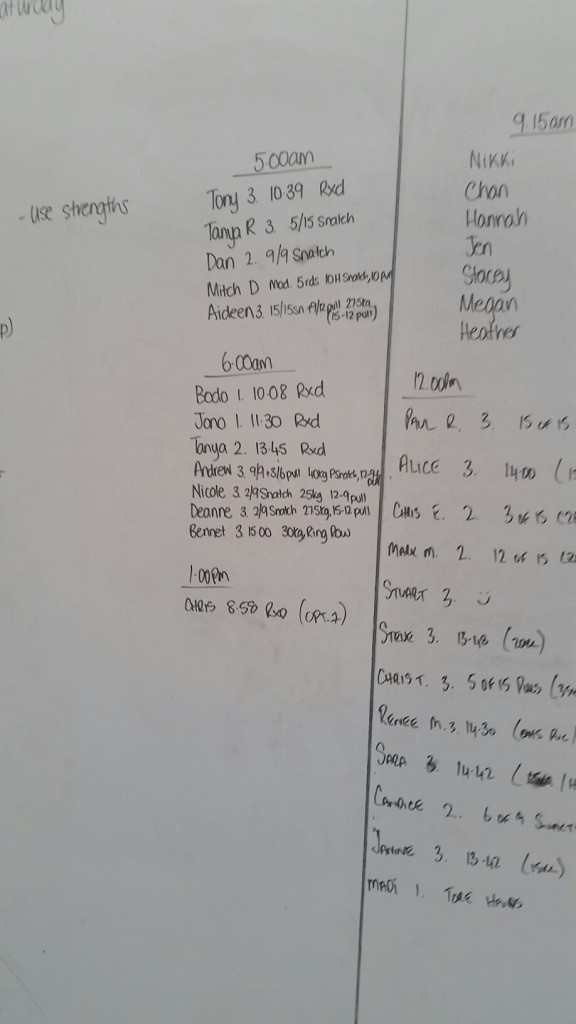 aturday
- use strengths
p)
5.00am
Tony 3. 10.39 Rxd
Tanya R 3. 5/15 Snatch
Dan 2. 9/9 Snatch
Mitch D mod. 5rds 10H Snatch, 10 pull
Aideen 3. 15/15sn + 9/12 pull 27.5kg (15-12 pull)
6.00am
Bodo 1. 10.08 Rxd
Jono 1. 11.30 Rxd
Tanya 2. 13.45 Rxd
Andrew 3. 9/9 + 3/6 pull 40kg PSnatch, 12-9-6 pull
Nicole 3. 2/9 Snatch 25kg 12-9 pull
Deanne 3. 2/9 Snatch 27.5kg, 15-12 pull
Bennet 3. 15.00 30kg, Ring Row
1.00pm
CHRIS 8.58 RXD (OPT.2)
9.15am
Nikki
Chan
Hannah
Jen
Stacey
Megan
Heather
12.00pm
PAUL R. 3. 15 OF 15
ALICE 3. 14.00
CHRIS E. 2. 3 OF 15
MARK M. 2. 12 OF 15
STUART 3. :)
STEVE 3. 13.48
CHRIS T. 3. 5 OF 15
RENEE M. 3. 14.30
SARA 3. 14.42
CANDICE 2. 6 OF 9
JANINE 3. 13.42
MADI 1. TORE HANDS